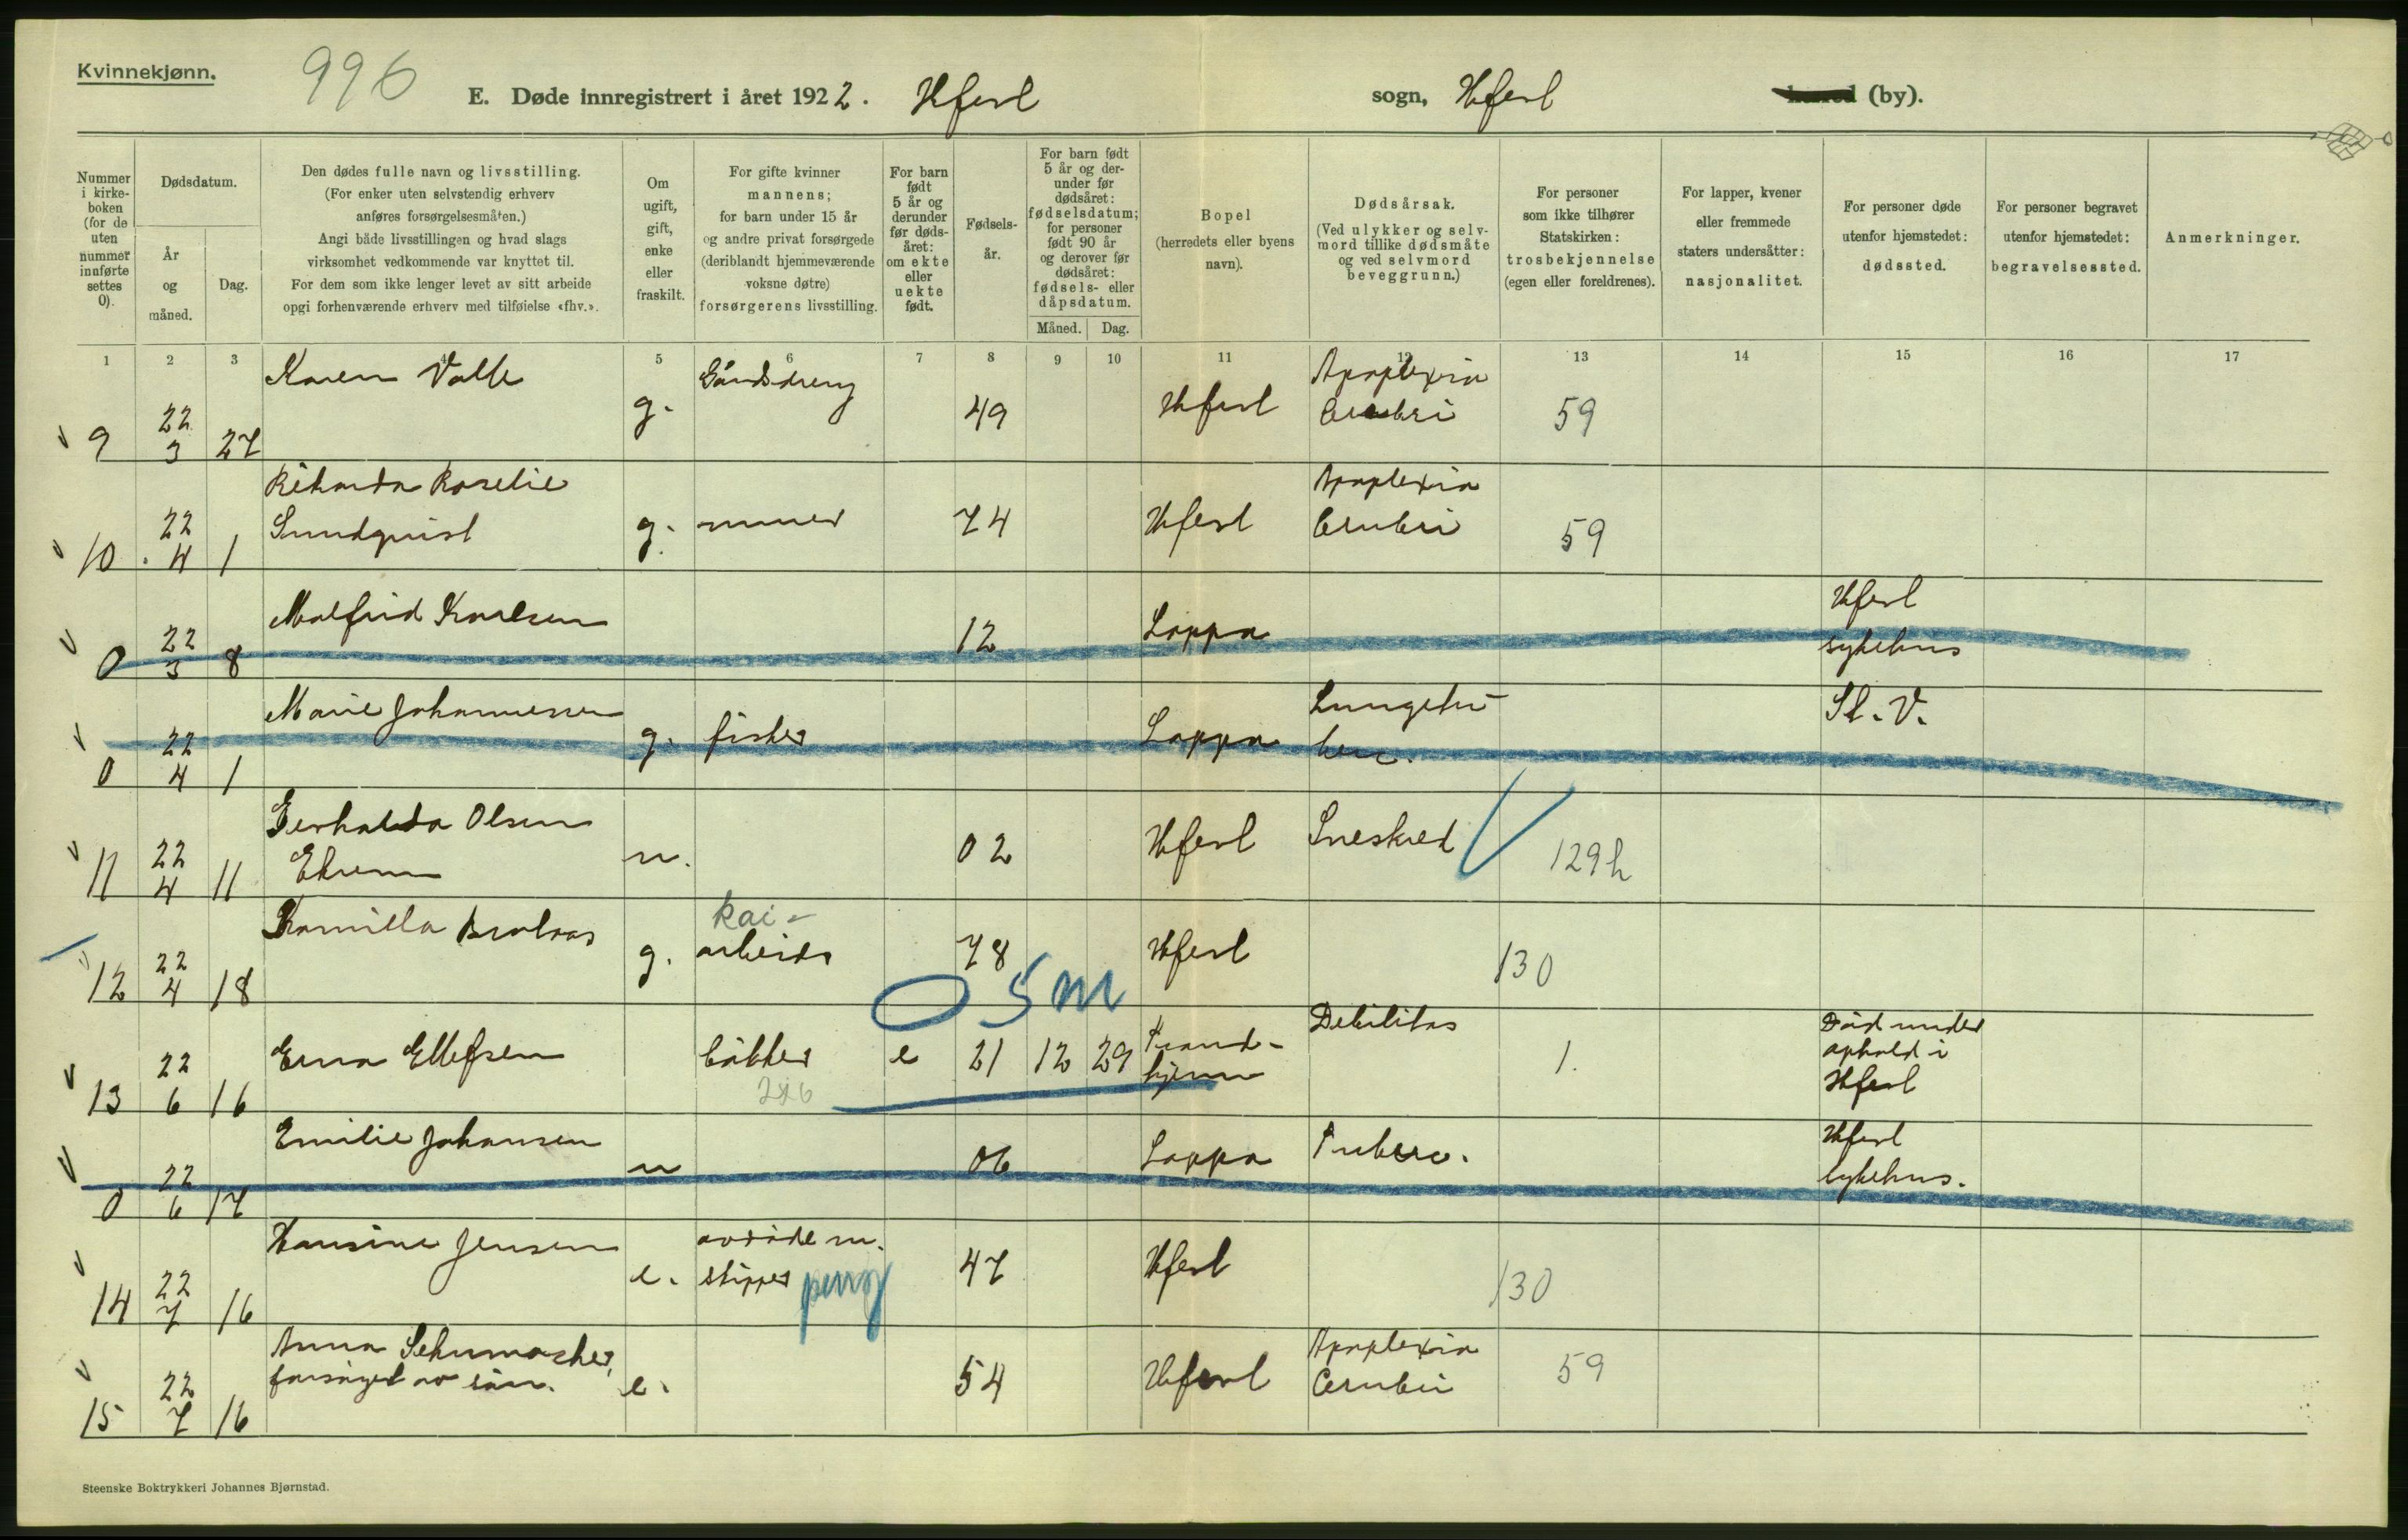 Kvinnekjønn.
996
E. Døde innregistrert i året 1922. Hfest sogn, Hfest herred (by).
Nummer i kirkeboken (for de uten nummer innførte settes 0).
Dødsdatum.
År og måned.
Dag.
Den dødes fulle navn og livsstilling.
(For enker uten selvstendig erhverv
anføres forsørgelsesmåten.)
Angi både livsstillingen og hvad slags
virksomhet vedkommende var knyttet til.
For dem som ikke lenger levet av sitt arbeide
opgi forhenværende erhverv med tilføielse «fhv.».
Om ugift, gift, enke eller fraskilt.
For gifte kvinner
mannens;
for barn under 15 år
og andre privat forsørgede
(deriblandt hjemmeværende
voksne døtre)
forsørgerens livsstilling.
For barn født 5 år og derunder før dødsåret: om ekte eller uekte født.
Fødselsår.
For barn født 5 år og derunder før dødsåret: fødselsdatum; for personer født 90 år og derover før dødsåret: fødsels- eller dåpsdatum.
Måned. Dag.
Bopel
(herredets eller byens
navn).
Dødsårsak.
(Ved ulykker og selvmord tillike dødsmåte
og ved selvmord
beveggrunn.)
For personer
som ikke tilhører
Statskirken:
trosbekjennelse
(egen eller foreldrenes).
For lapper, kvener
eller fremmede
staters undersåtter:
nasjonalitet.
For personer døde
utenfor hjemstedet:
dødssted.
For personer begravet
utenfor hjemstedet:
begravelsessted.
Anmerkninger.
1 2 3 4 5 6 7 8 9 10 11 12 13 14 15 16 17
9 22 3 27 Karen Valle g. 49 Hfest Apoplexia Cerebri 59
10 22 4 1 Rikarda Roselie Sundquist g. murer 74 Hfest Apoplexia Cerebri 59
0 22 3 8 Malfrid Karlsen 12 Loppa Hfest sykehus
0 22 4 1 Marie Johannessen g. fisker Loppa Lungetuberc. St. V.
11 22 4 11 Gerharda Olsen Ekrem u. 02 Hfest Sneskred 129h
12 22 4 18 Kamilla g. kai-arbeider 78 Hfest 130
05m
13 22 6 16 Erna Ellefsen bøkker e 21 12 29 Trondhjem Debilitas 1. Død under ophold i Hfest
0 22 6 17 Emilie Johansen u 06 Loppa Tuberc. Hfest sykehus.
14 22 7 16 Hansine Jensen e. avdøde m. skipper 47 Hfest 130
15 22 7 16 Anna Schumacher, forsørget av søn. e. 54 Hfest Apoplexia Cerebri 59
Steenske Boktrykkeri Johannes Bjørnstad.